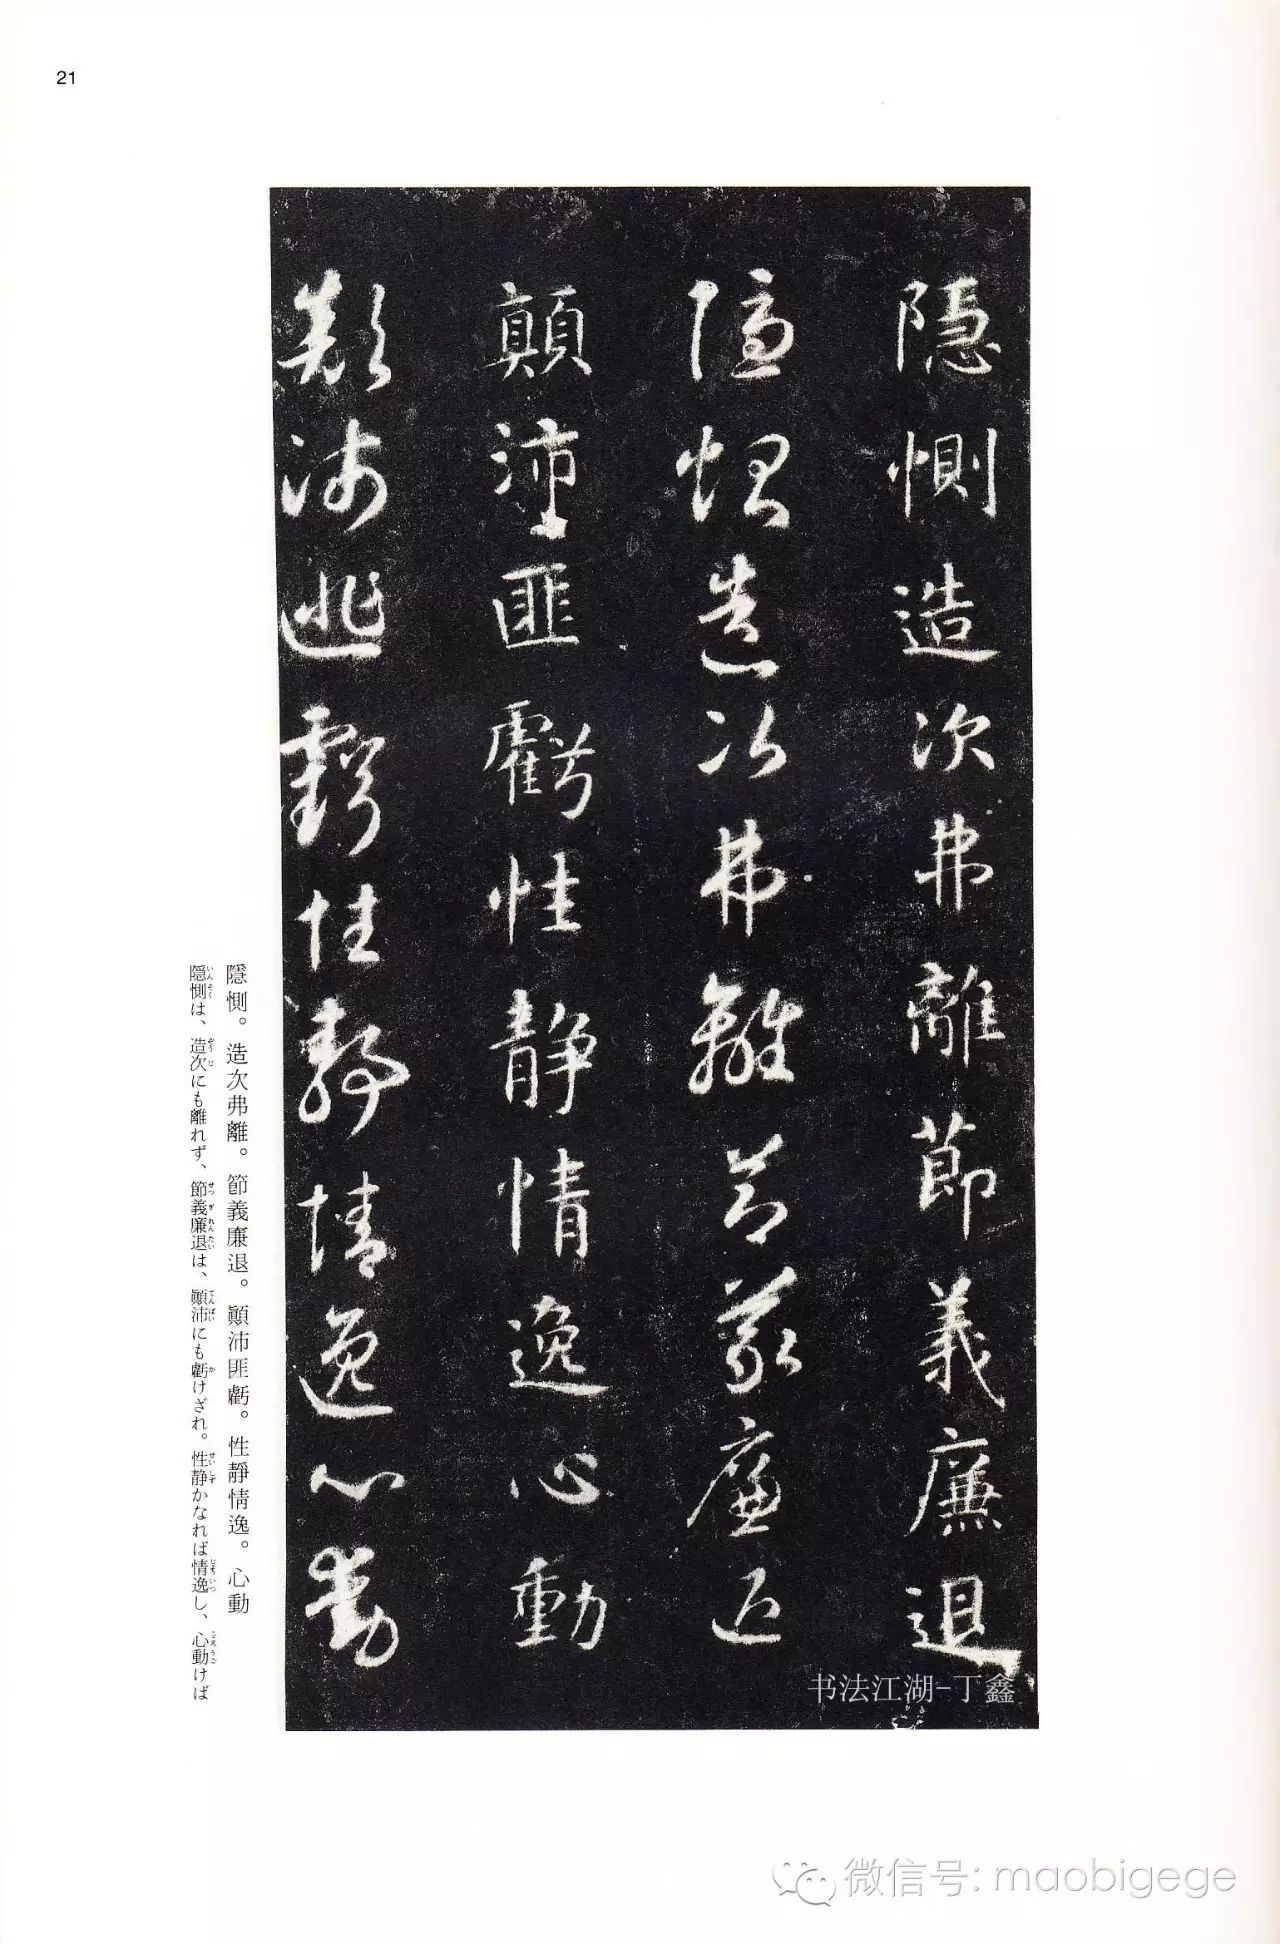 21
隱惻造次弗離節義廉退
隱惻造次弗離節義廉退
顛沛匪虧性靜情逸心動
顛沛匪虧性靜情逸心動
书法江湖-丁鑫
隱惻。造次弗離。節義廉退。顚沛匪虧。性靜情逸。心動
隠惻は、造次にも離れず、節義廉退は、顚沛にも虧けざれ。性静かなれば情逸し、心動けば
微信号: maobigege